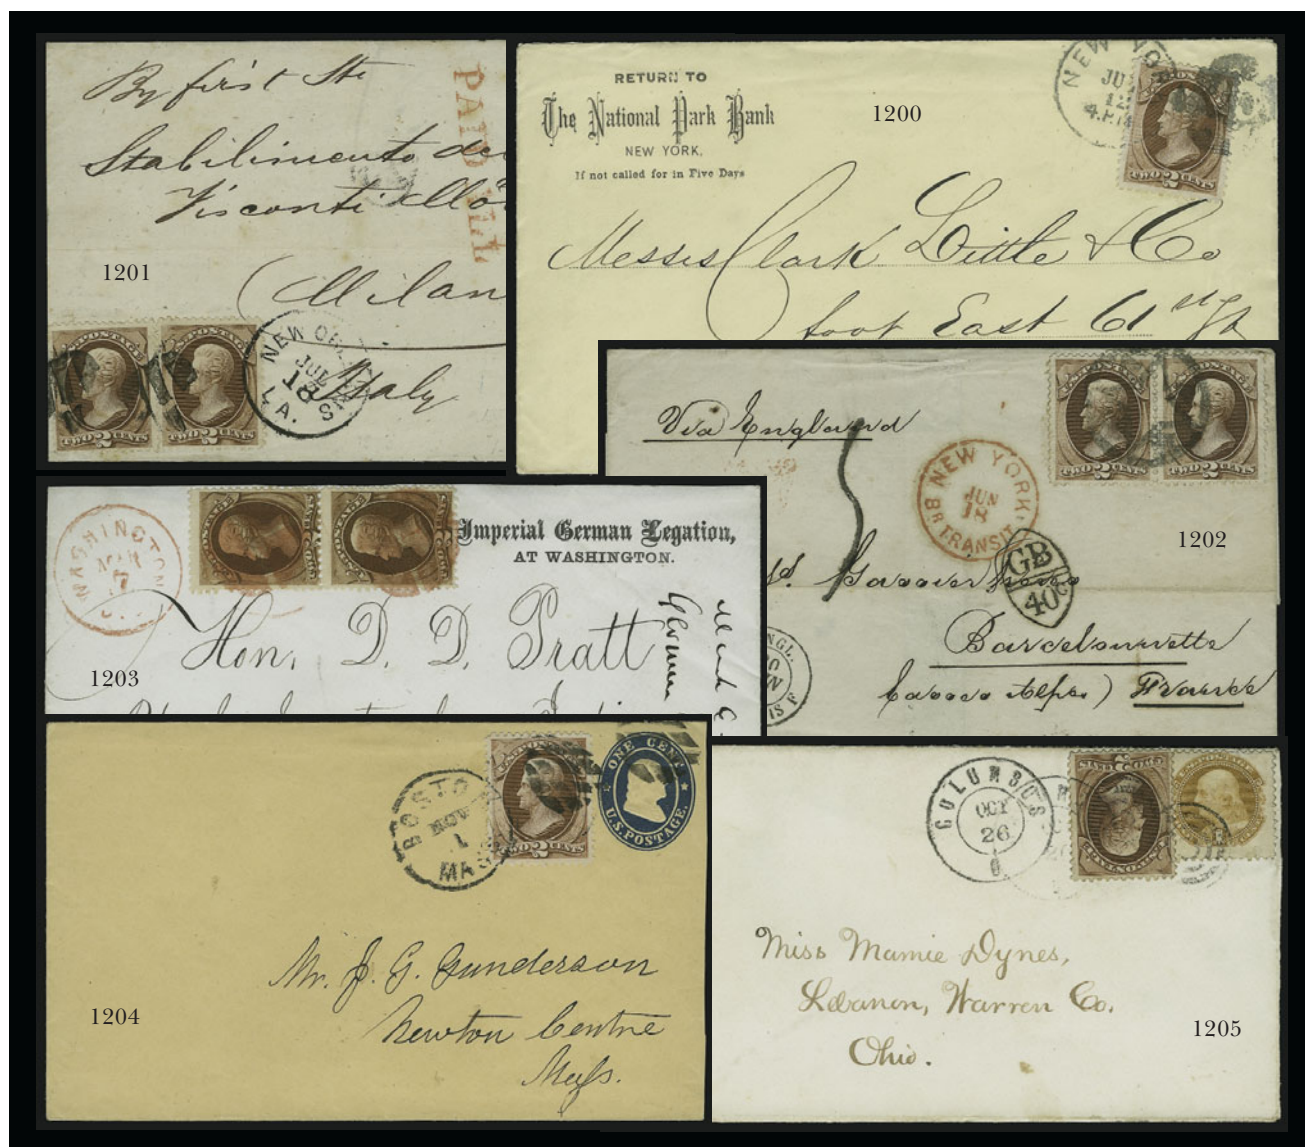 By first Str
Stabilimento
Visconti
(Milan
Italy
PAID ALL
1201
NEW
JUL
18
LA.
TWO 2 CENTS
TWO 2 CENTS
RETURN TO
The National Park Bank
NEW YORK,
If not called for in Five Days
1200
NEW YO
4.PM
TWO 2 CENTS
Messrs Clark Little & Co
foot East 61
Via England
NEW YORK
JUN
18
BR TRANSIT
GB
40c
TWO 2 CENTS
TWO 2 CENTS
1202
Barcelonnette
France
WASHINGTON
MAR
7
Imperial German Legation,
AT WASHINGTON.
Hon. D. D. Pratt
1203
BOSTO
NOV
1
MASS
TWO 2 CENTS
ONE CENT
U.S. POSTAGE.
Mr. J. G. Gunderson
Newton Centre
Mass.
1204
COLUMBUS
OCT
26
O.
Miss Mamie Dynes,
Lebanon, Warren Co.
Ohio.
1205